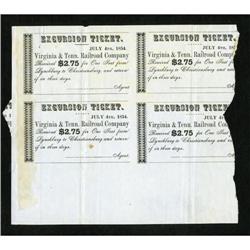 EXCURSION TICKET.
JULY 4TH, 1854.
Virginia & Tenn. Railroad Company
Received $2.75 for One Seat from
Lynchburg to Christiansburg and return
if in three days.
Agent.
EXCURSION TICKET.
JULY 4TH, 18
Virginia & Tenn. Railroad
Received $2.75 for One
Lynchburg to Christiansburg
if in three days.
EXCURSION TICKET.
JULY 4TH, 1854.
Virginia & Tenn. Railroad Company
Received $2.75 for One Seat from
Lynchburg to Christiansburg and return
if in three days.
Agent.
EXCURSION TICKET.
JULY 4TH
Virginia & Tenn. Railroad
Received $2.75 for One
Lynchburg to Christiansburg
if in three days.